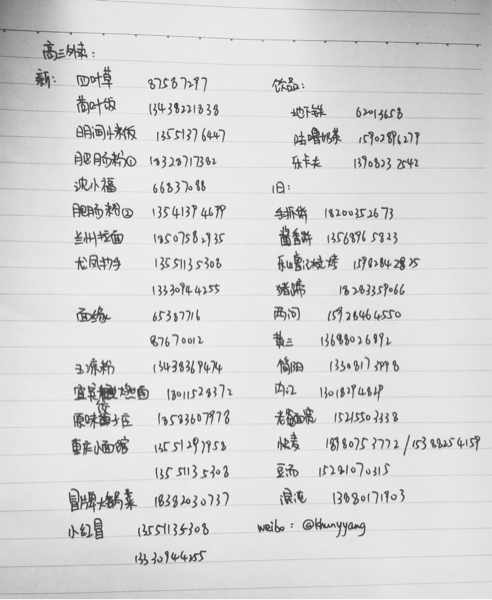 高三外卖：
新：四叶草 87587297
荷叶饭 13438221838
明间小煮饭 13551376447
肥肠粉① 18328717382
沈小福 66837088
肥肠粉② 13541394679
兰州拉面 18507582935
龙凤抄手 13551135308
13330944255
面缘 65387716
87670012
王凉粉 13438369474
宜宾燃面 18011528372
原味饺子庄 18583607978
重庆小面馆 13551297958
13551135308
冒牌火锅菜 18382030737
小红冒 13551135308
13330944255
饮品：
地下铁 62013658
咕噜奶茶 15902896279
乐卡夫 13908232542
旧：
手撕饼 18200352673
酱香饼 13568965823
乐山烧烤 15982842825
猪蹄 18283359066
两河 15928464550
黄三 13688026892
简阳 13308173898
内江 13018294829
老面 15215503338
快麦 18980753772 / 15388254159
豆汤 15281070315
混沌 13880171903
weibo：@khunyyang